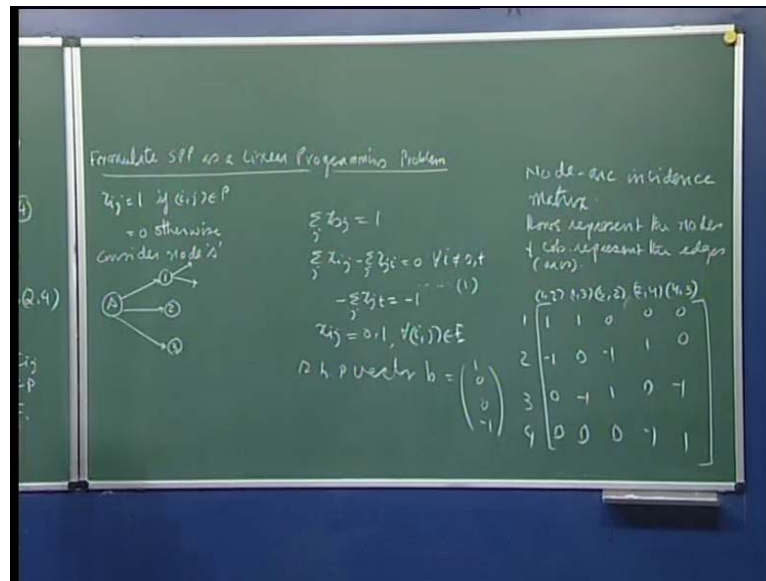 4)
(2,4)
ij
P
E.
Formulate SPP as a Linear Programming Problem
xij = 1 if (i,j) ∈ P
= 0 otherwise
consider node 's'
s
1
2
3
∑j xsj = 1
∑j xij - ∑j xji = 0 ∀ i ≠ s,t
..... (1)
-∑j xjt = -1
xij = 0,1, ∀(i,j) ∈ E
r.h.s vector b = (1 0 0 -1)
Node-arc incidence
matrix.
Rows represent the nodes
& cols. represent the edges
(arcs).
(1,2) (1,3) (3,2) (2,4) (4,3)
1 1 1 0 0 0
2 -1 0 -1 1 0
3 0 -1 1 0 -1
4 0 0 0 -1 1